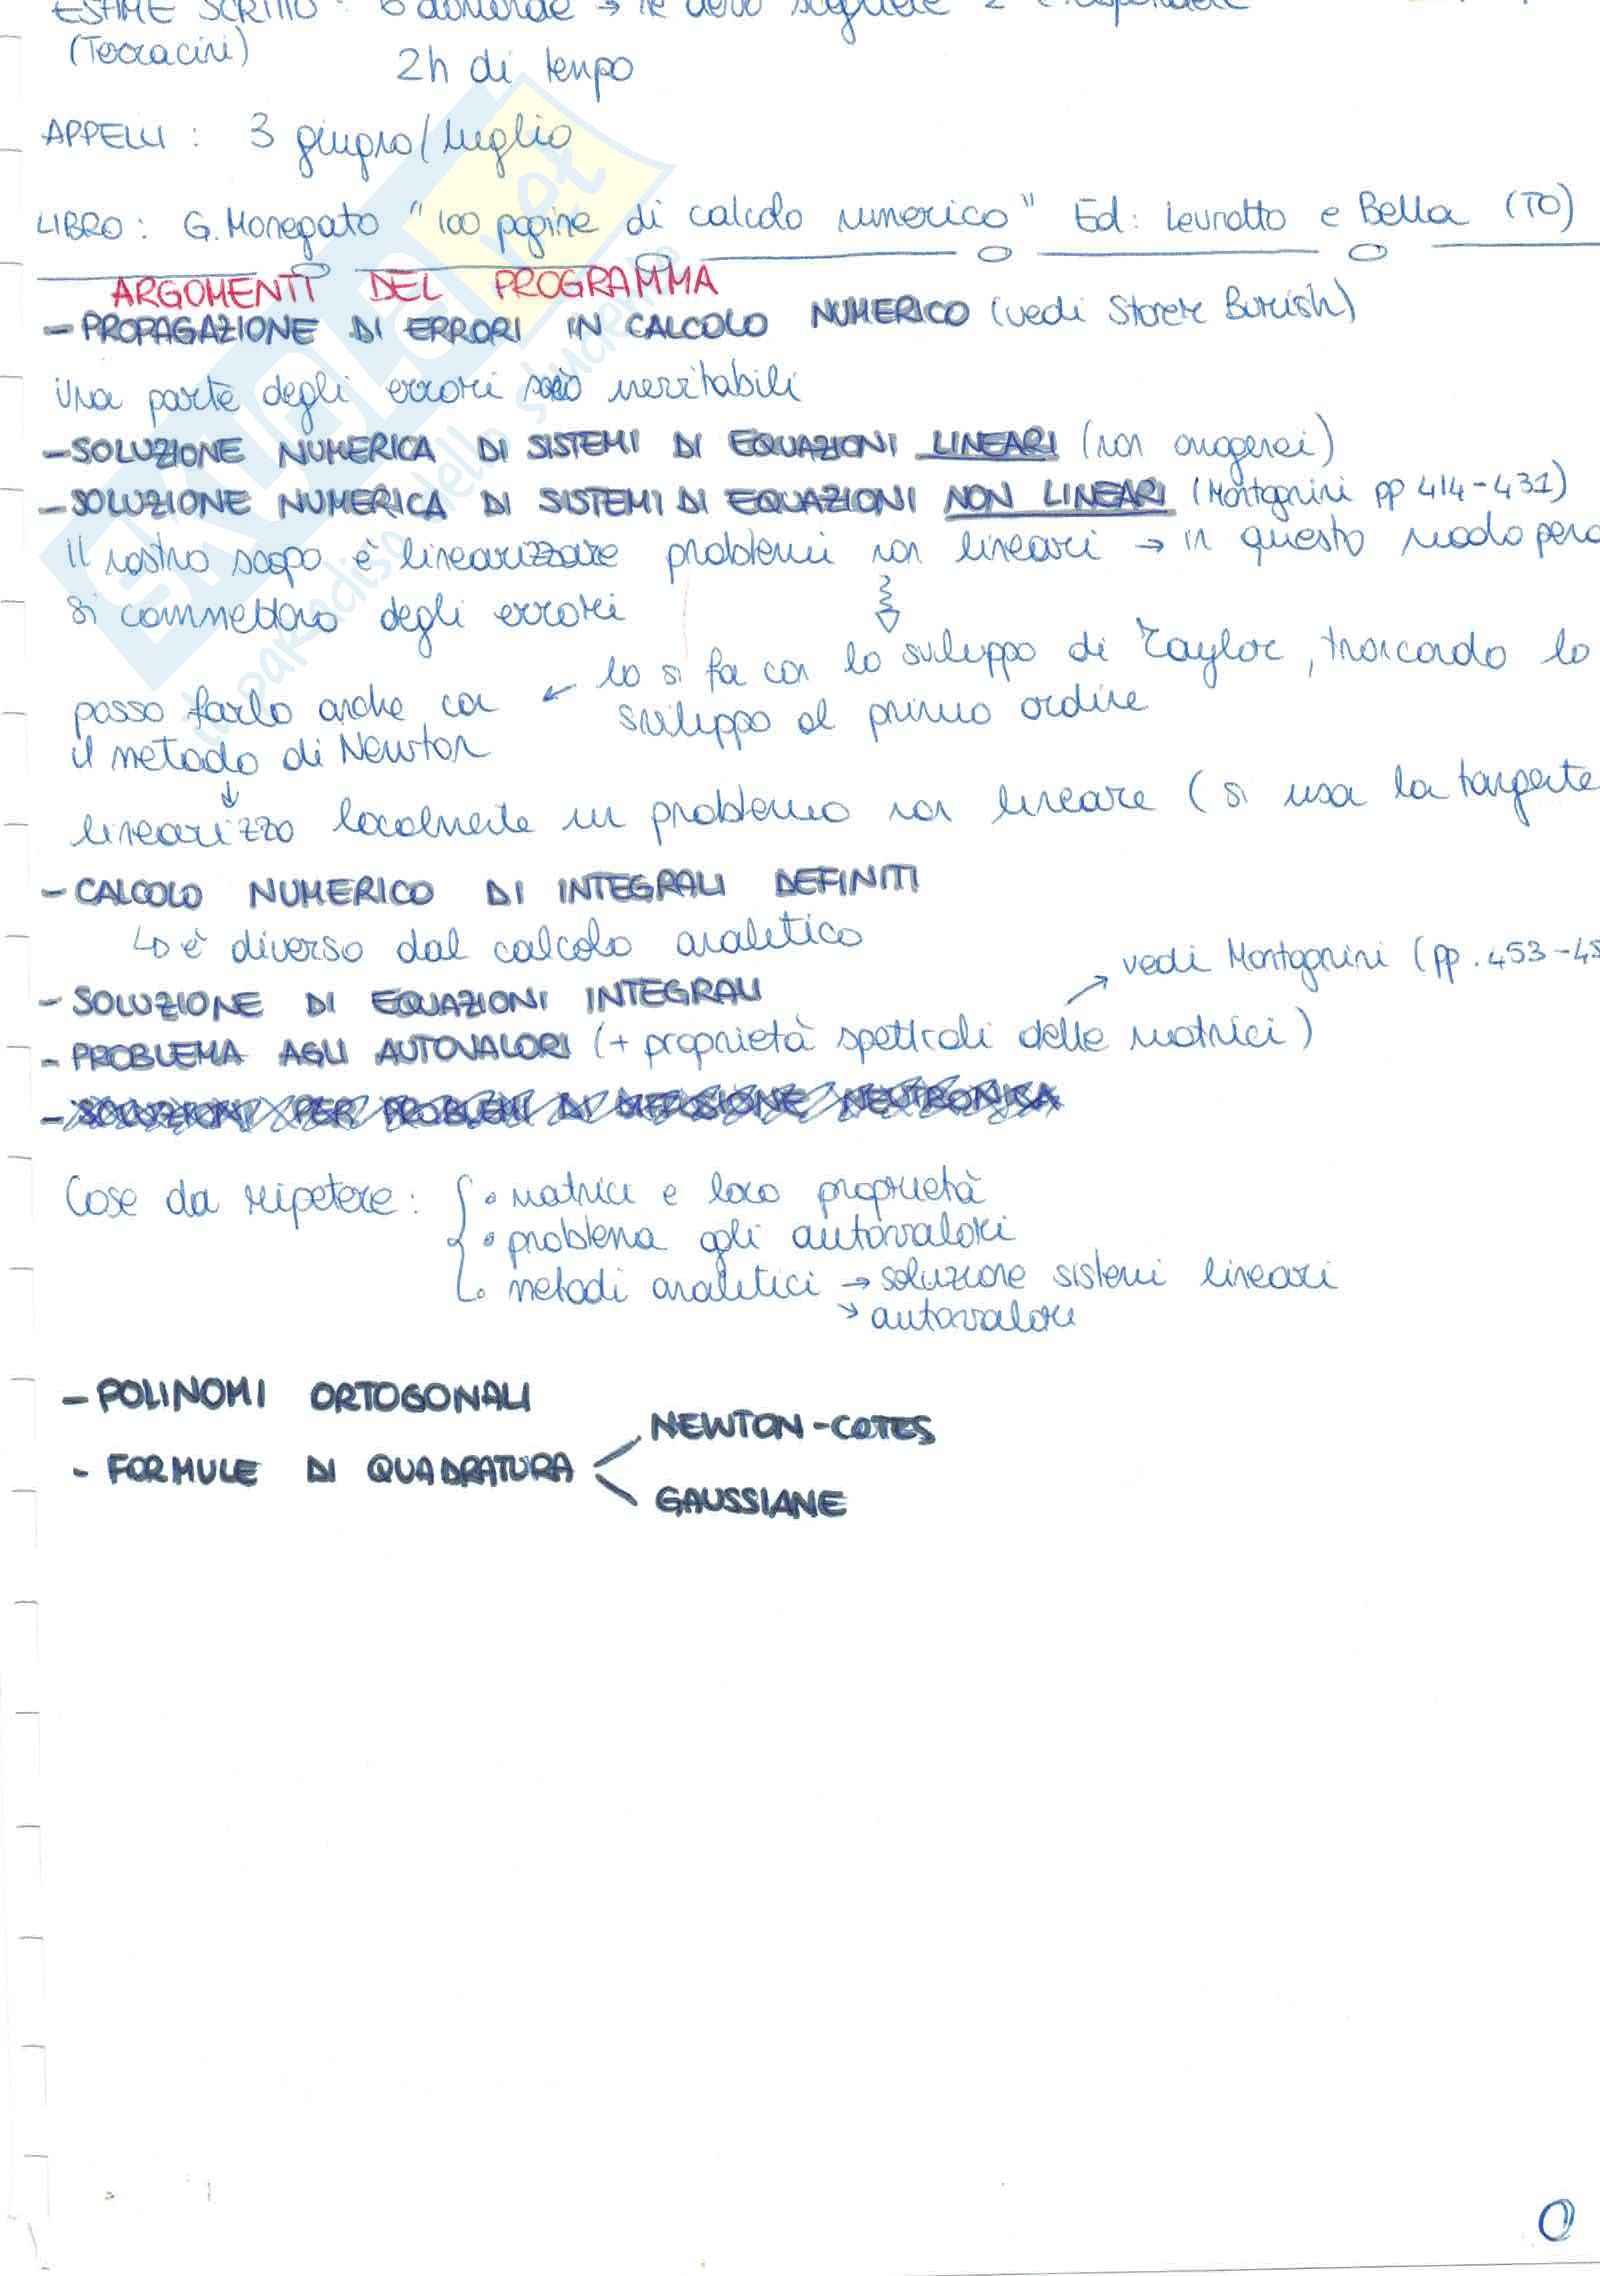 ESAME SCRITTO: 6 domande → ne devo scegliere 2 e rispondere
(Terracini) 2h di tempo
APPELLI: 3 giugno/luglio
LIBRO: G. Monegato "100 pagine di calcolo numerico" Ed: Levrotto e Bella (TO)
ARGOMENTI DEL PROGRAMMA
- PROPAGAZIONE DI ERRORI IN CALCOLO NUMERICO (vedi
Una parte degli errori inevitabili
- SOLUZIONE NUMERICA DI SISTEMI DI EQUAZIONI LINEARI (non omogenei)
- SOLUZIONE NUMERICA DI SISTEMI DI EQUAZIONI NON LINEARI (Montagnini pp 414-431)
Il nostro scopo è linearizzare problemi non lineari → in questo modo però
si commettono degli errori
lo si fa con lo sviluppo di Taylor, troncando lo
sviluppo al primo ordine
posso farlo anche con
il metodo di Newton
↓
linearizzo localmente un problema non lineare (si usa la tangente
- CALCOLO NUMERICO DI INTEGRALI DEFINITI
↳ è diverso dal calcolo analitico
- SOLUZIONE DI EQUAZIONI INTEGRALI
- PROBLEMA AGLI AUTOVALORI (+ proprietà spettrali delle matrici)
→ vedi Montagnini (pp. 453-45
- SOLUZIONI PER PROBLEMI DI DIFFUSIONE NEUTRONICA
Cose da ripetere:
• matrici e loro proprietà
• problema agli autovalori
• metodi analitici → soluzione sistemi lineari
→ autovalori
- POLINOMI ORTOGONALI
- FORMULE DI QUADRATURA
NEWTON-COTES
GAUSSIANE
0
SKUOLA.net
il paradiso dello studente